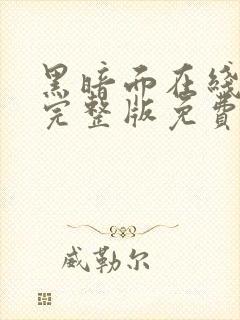 黑暗而在线
完整版免费
威勒尔